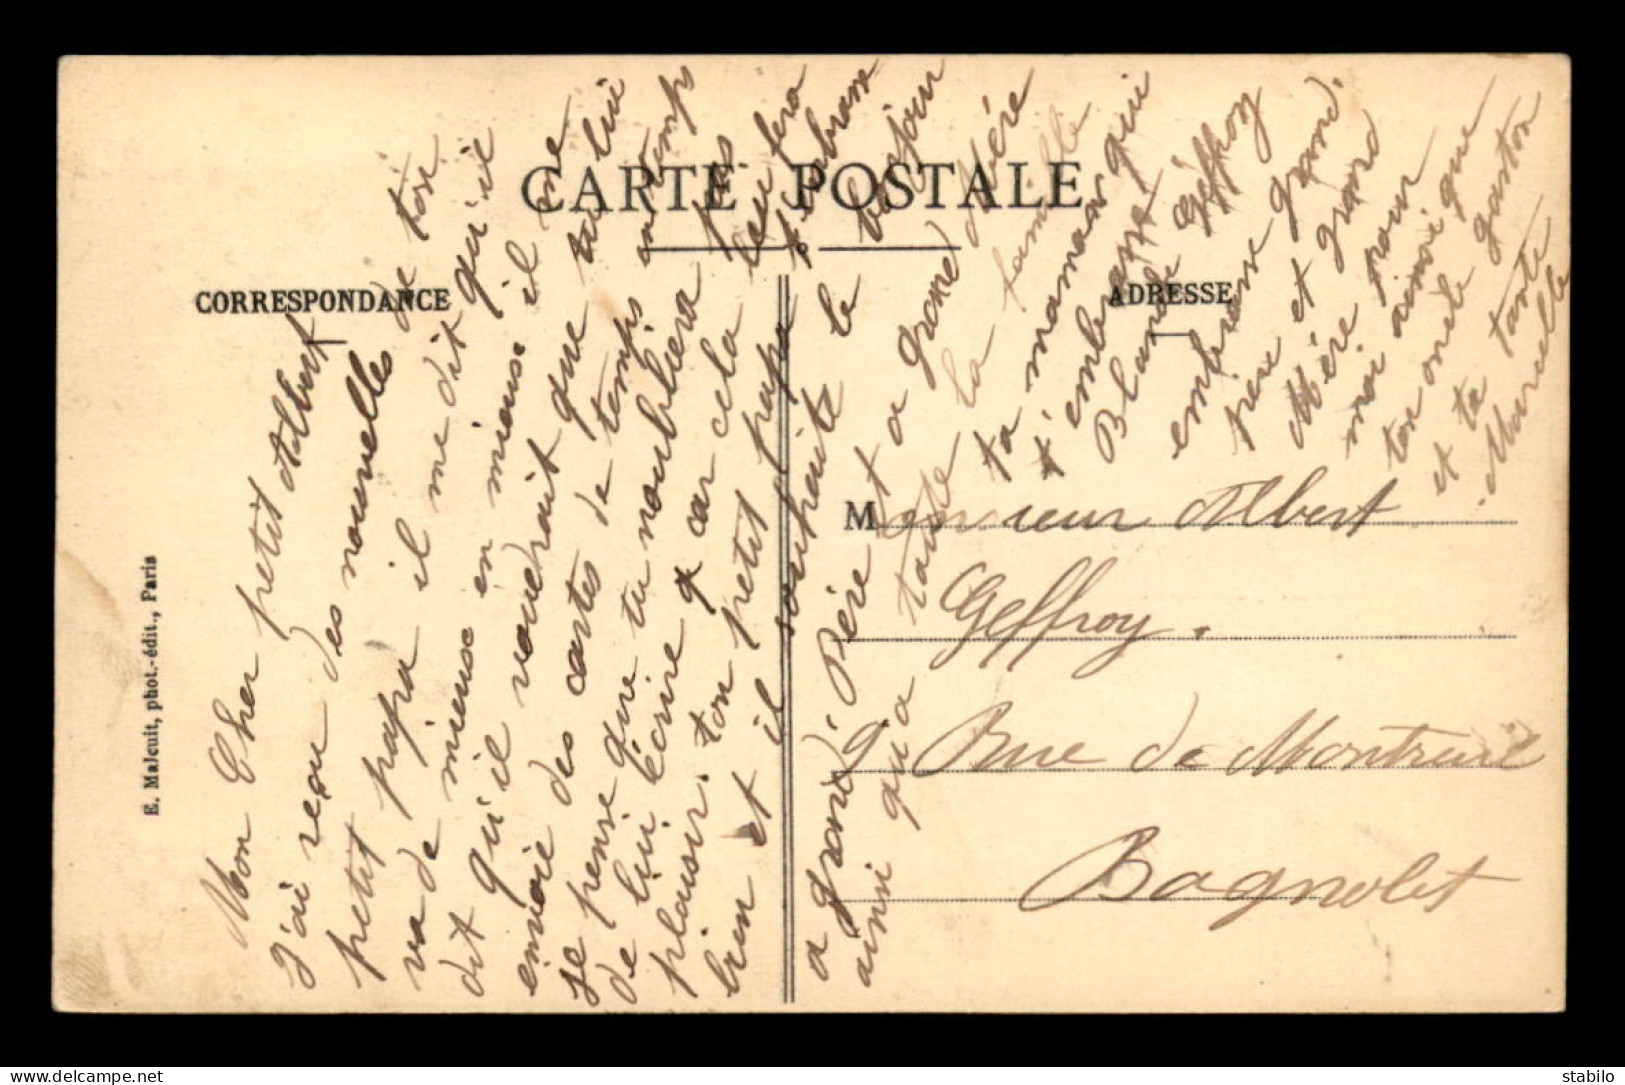 CARTE POSTALE
CORRESPONDANCE
ADRESSE
E. Malcuit, phot.-édit., Paris
Mon Cher petit Albert
J'ai reçu des nouvelles de ton
petit papa il me dit qu'il
va de mieux en mieux il me
dit qu'il voudrait que tu lui
envoie des cartes de temps en temps
je pense que tu noubliera pas
de lui écrire car cela lui fera
plaisir. ton petit papa t'embrasse
bien et il souhaite le bonjour
a grand Père et a grand Mére
ainsi qu a toute la famille
ta maman qui
t'embrasse
Blanche Géffroy
embrasse grand
pere et grand
Mére pour
moi ainsi que
ton oncle gaston
et ta tante
Marcelle
Monsieur Albert
Geffroy.
9 Rue de Montreuil
Bagnolet
stabilo